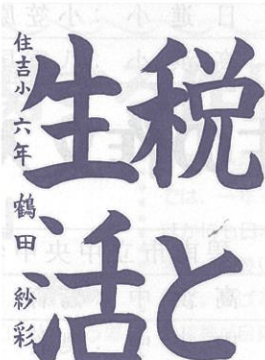 税と
生活
住吉小 六年 鶴田 紗彩